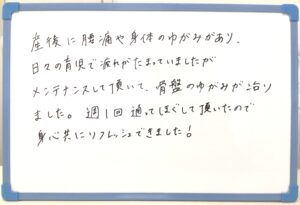 産後に腰痛や身体のゆがみがあり、
日々の育児で疲れがたまっていましたが
メンテナンスして頂いて、骨盤のゆがみが治り
ました。週1回通ってほぐして頂いたので
身心共にリフレッシュできました!